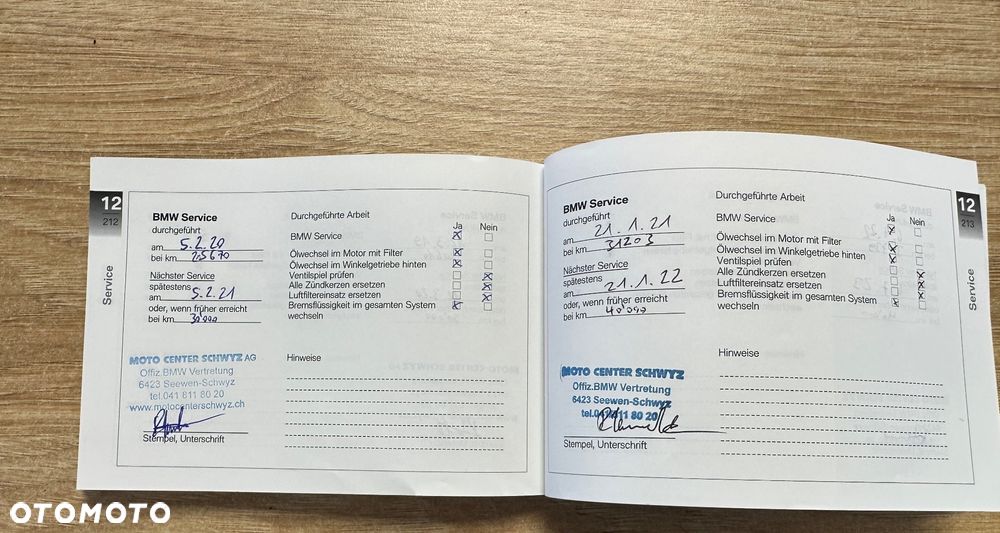 12
212
Service
BMW Service
durchgeführt
am 5.2.20
bei km 25670
Nächster Service
spätestens
am 5.2.21
oder, wenn früher erreicht
bei km 30'000
MOTO CENTER SCHWYZ AG
Offiz.BMW Vertretung
6423 Seewen-Schwyz
tel.041 811 80 20
www.motocenterschwyz.ch
Stempel, Unterschrift
Durchgeführte Arbeit
Ja Nein
BMW Service
Ölwechsel im Motor mit Filter
Ölwechsel im Winkelgetriebe hinten
Ventilspiel prüfen
Alle Zündkerzen ersetzen
Luftfiltereinsatz ersetzen
Bremsflüssigkeit im gesamten System
wechseln
Hinweise
BMW Service
durchgeführt
am 21.1.21
bei km 31203
Nächster Service
spätestens
am 21.1.22
oder, wenn früher erreicht
bei km 40'000
MOTO CENTER SCHWYZ
Offiz.BMW Vertretung
6423 Seewen-Schwyz
tel.041 811 80 20
Stempel, Unterschrift
Durchgeführte Arbeit
Ja Nein
BMW Service
Ölwechsel im Motor mit Filter
Ölwechsel im Winkelgetriebe hinten
Ventilspiel prüfen
Alle Zündkerzen ersetzen
Luftfiltereinsatz ersetzen
Bremsflüssigkeit im gesamten System
wechseln
Hinweise
12
213
Service
OTOMOTO